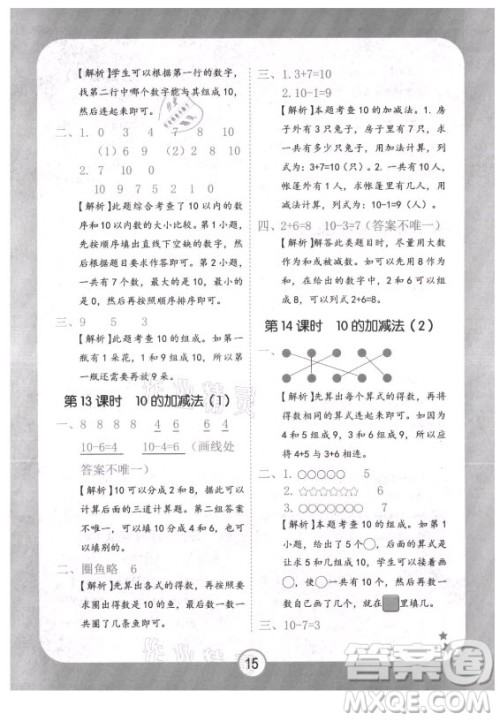 【解析】学生可以根据第一行的数字，
找第二行中哪个数字能与其组成 10，
然后连起来即可。
二、1. 0 3 4 7 8 10
（1）（2）8 10
2. 7 10 0
0 3 4 7 8 10
【解析】此题综合考查了 10 以内的数
序和 10 以内数的大小比较。第 1 小题，
先按顺序写出直线下空缺的数字，然
后对照直线上的数字作答。第 2 小题，
一共有 7 个数，最大的是 10，最小的
是 0，然后按从小到大的顺序写出即
可。
三、9 5 3
【解析】本题考查 10 的组成。第一瓶
有 1 朵花，1 和 9 组成 10，所以
第一瓶下面应该写 9。
第 13 课时 10 的加减法（1）
一、8 8 8 8 4 6 6 4
10-6=4 10-4=6（画线处
答案不唯一）
【解析】10 可以分成 2 和 8，据此可以
计算后面的三道计算题。第二组答案
不唯一，可以填 10 分成 4 和 6，也可
以填别的。
二、圈鱼略 6
【解析】先算出各式的得数，再按要
求圈出得数是 10 的鱼，然后数一数圈
了几条鱼即可。
三、1. 3+7=10
2. 10-1=9
【解析】本题考查 10 的加减法。1. 房
子外有 3 只兔子，房子里有 7 只，求一
共有多少只兔子，用加法计算，列式
为 3+7=10（只）。2. 一共有 10 人，
帐篷外有 1 人，求帐篷里有几人，用
减法计算，列式为 10-1=9（人）。
四、2+6=8 10-3=7（答案不唯一）
【解析】解答此类题目时，尽量用大数
作为和或被减数，以便计算。如第 1 题，
在给出的数字中，2 和 6 能组成 8，
可以列式 2+6=8。
第 14 课时 10 的加减法（2）
一、
【解析】先算出每个算式的得数，再
将得数相等的算式连起来即可。例如，
4 和 5 组成 9，1 和 8 组成 9，所以
应将 4+5 与 1+8 连起来。
二、1. ○○○○○ 5
2. ☆☆☆☆☆☆ 6
3. ○○○○○○○ 7
【解析】本题考查 10 的组成。如第 1
小题中，给出了 5 个○，后面的算式是让
我们计算 10 可以分成 5 和几。学生可以
边数边画○，一共画 5 个，并在里填 5。
三、10-7=3
15
答案圈
MXQE.COM